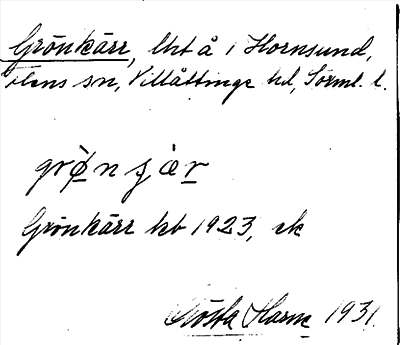 Grönkärr, lht å i Hornsund,
Flens sn, Villåttinge hd, Sörml. l.
grø̀nɟær
Grönkärr kb 1923, ek
Gösta Harm 1931.